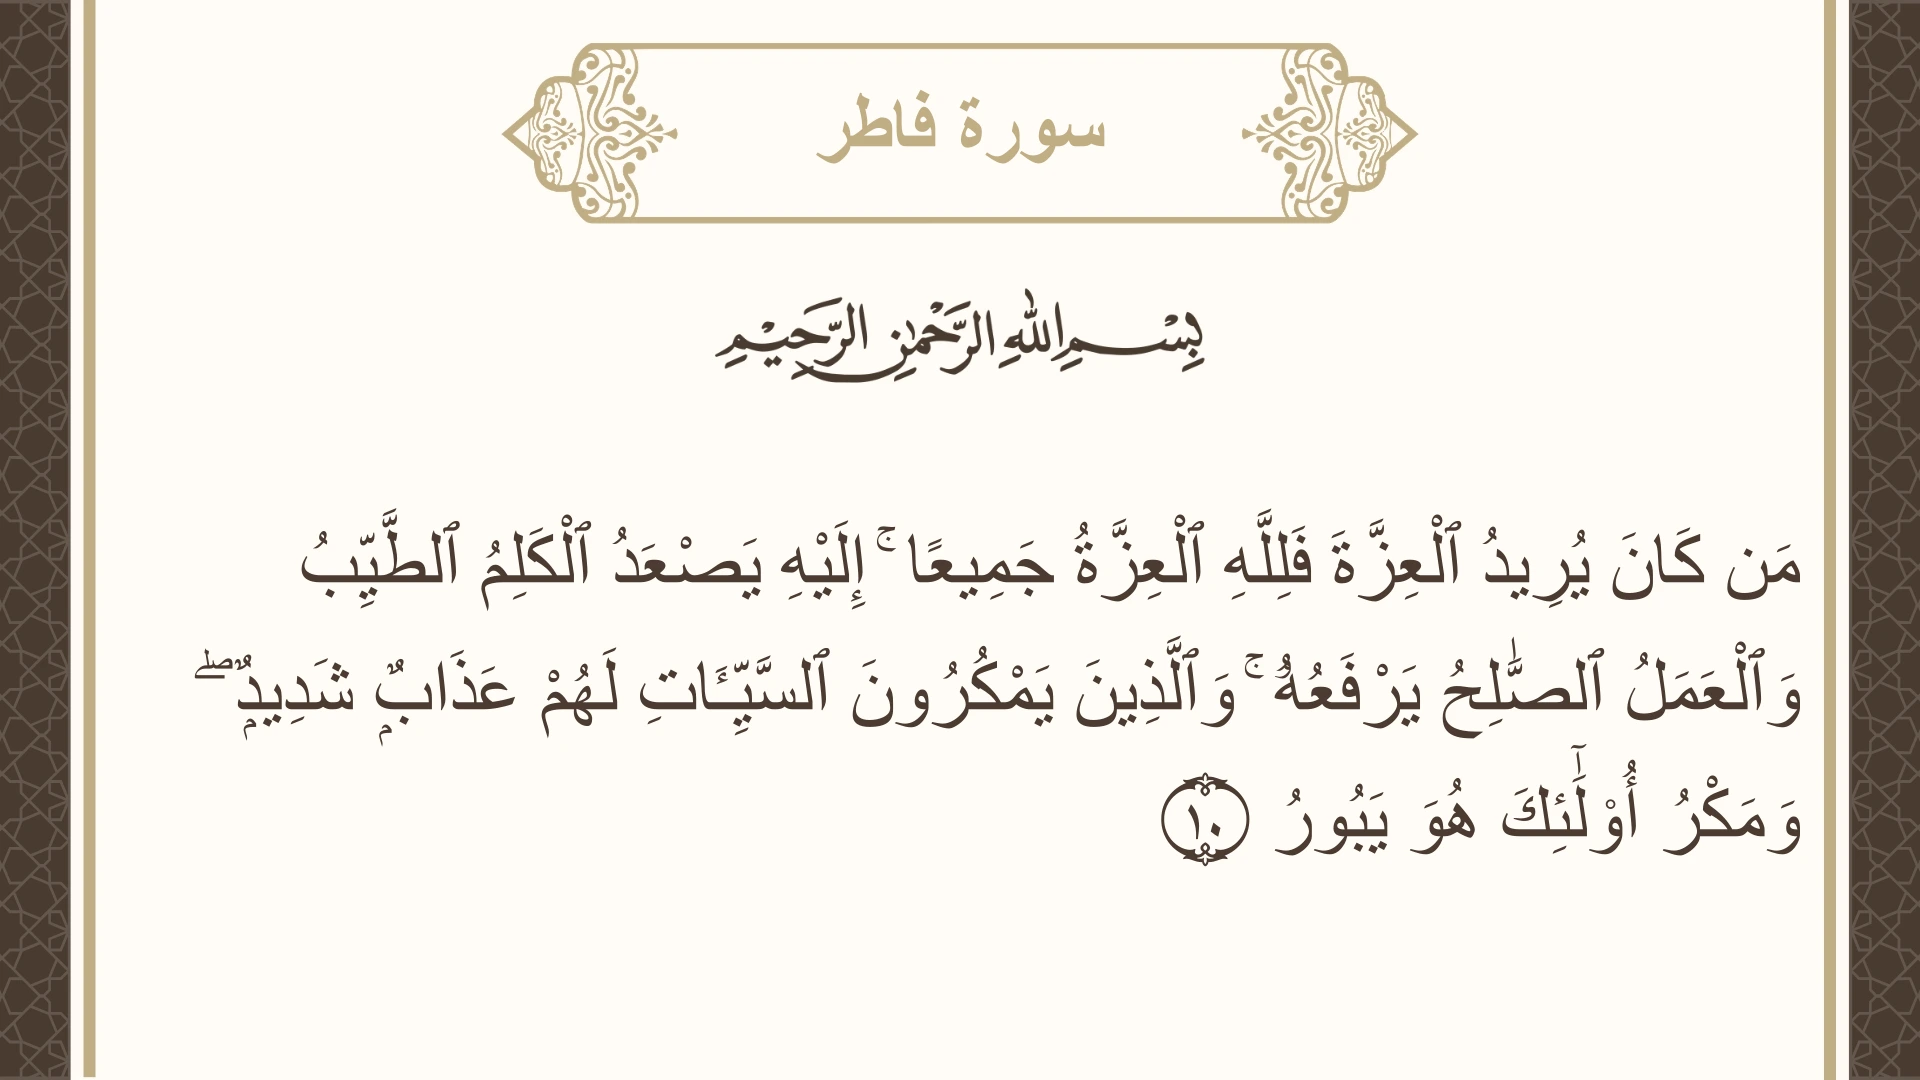 سورة فاطر
بِسْمِ اللهِ الرَّحْمٰنِ الرَّحِيْمِ
مَن كَانَ يُرِيدُ ٱلْعِزَّةَ فَلِلَّهِ ٱلْعِزَّةُ جَمِيعًا ۚ إِلَيْهِ يَصْعَدُ ٱلْكَلِمُ ٱلطَّيِّبُ
وَٱلْعَمَلُ ٱلصَّٰلِحُ يَرْفَعُهُۥ ۚ وَٱلَّذِينَ يَمْكُرُونَ ٱلسَّيِّـَٔاتِ لَهُمْ عَذَابٌۭ شَدِيدٌۭ ۖ
وَمَكْرُ أُو۟لَٰٓئِكَ هُوَ يَبُورُ ١٠